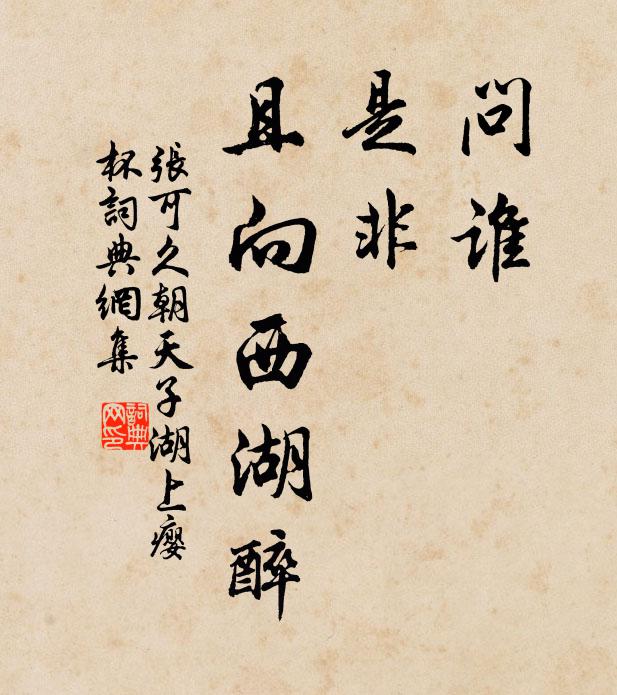 問誰
是非
且向西湖醉
張可久朝天子湖上癭
杯詞典網集
詞典
网印